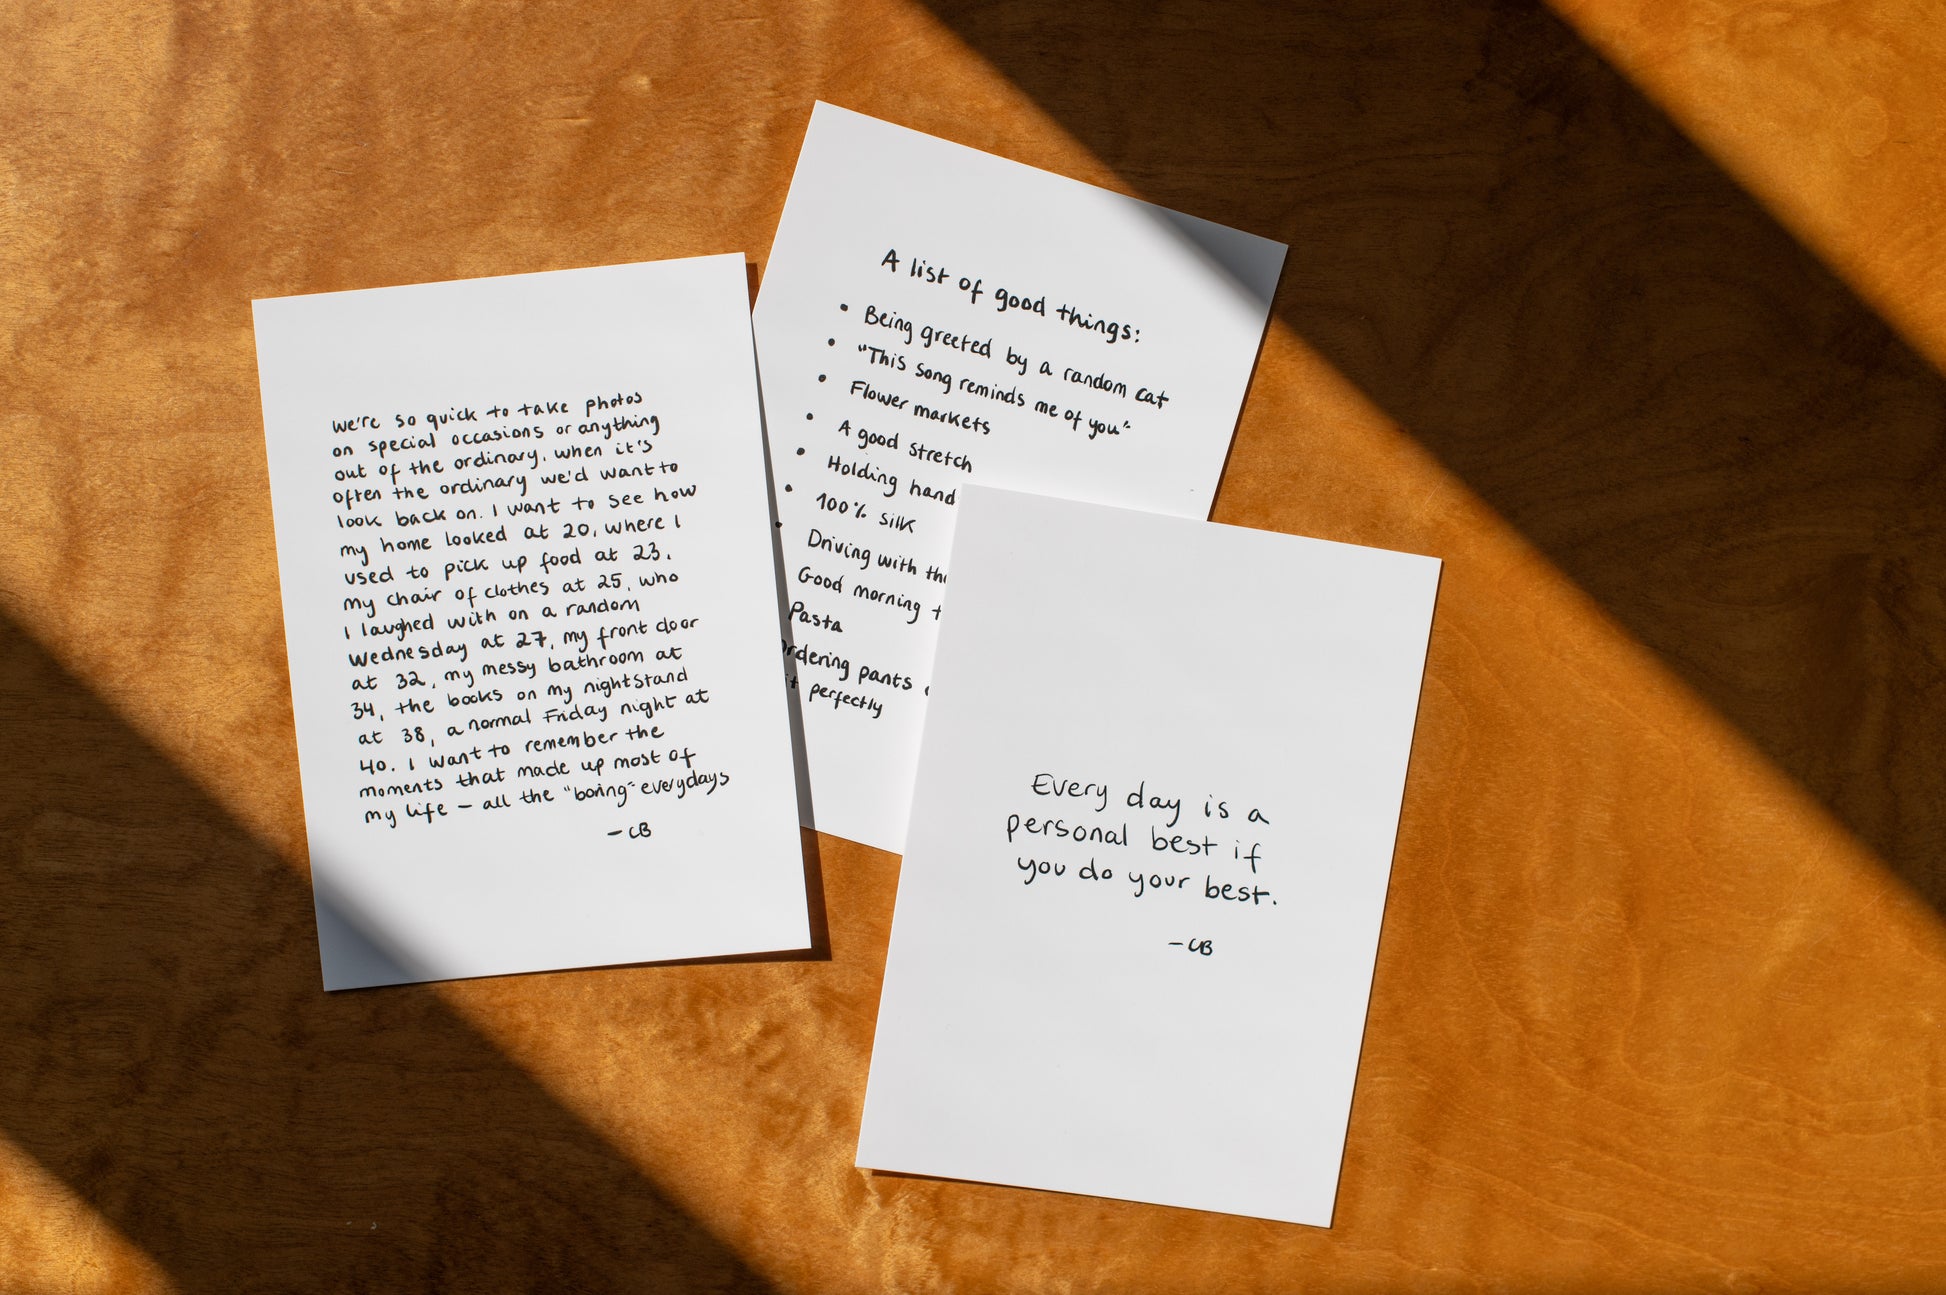 we're so quick to take photos
on special occasions or anything
out of the ordinary, when it's
often the ordinary we'd want to
look back on. I want to see how
my home looked at 20, where I
used to pick up food at 23,
my chair of clothes at 25, who
I laughed with on a random
Wednesday at 27, my front door
at 32, my messy bathroom at
34, the books on my nightstand
at 38, a normal Friday night at
40. I want to remember the
moments that made up most of
my life – all the "boring" everydays
– CB
A list of good things:
• Being greeted by a random cat
• "This song reminds me of you"
• Flower markets
• A good stretch
• Holding hand
• 100% silk
• Driving with the
Good morning t
Pasta
ordering pants
perfectly
Every day is a
personal best if
you do your best.
– CB